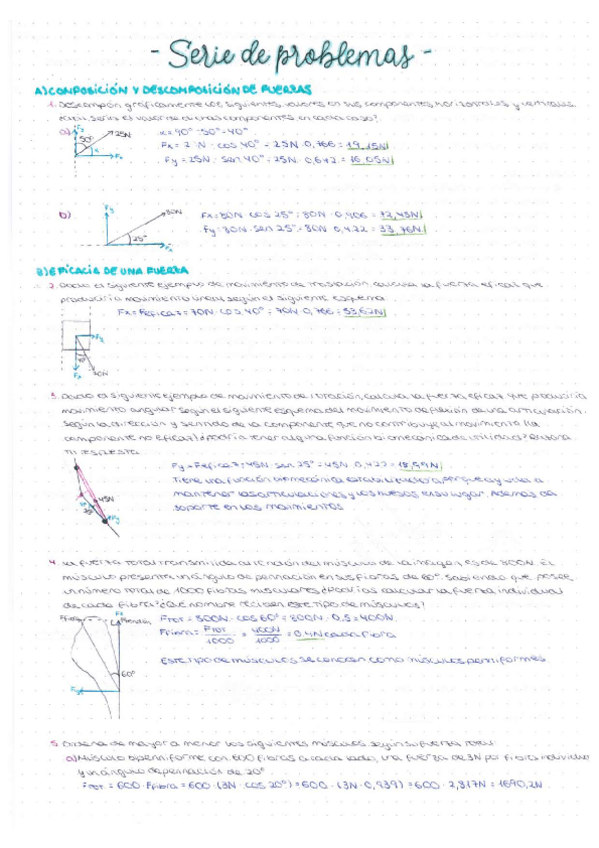 - Serie de problemas -
A) COMPOSICIÓN Y DESCOMPOSICIÓN DE FUERZAS
1. Descompón gráficamente los siguientes vectores en sus componentes horizontales y verticales.
¿Cuál sería el valor de dichas componentes en cada caso?
a) Fy 50° 25N α Fx
α = 90° - 50° = 40°
Fx = 2 N · cos 40° = 25N · 0,766 = 19,15N
Fy = 25N · sen 40° = 25N · 0,642 = 16,05N
b) Fy 80N 25° Fx
Fx = 80N · cos 25° = 80N · 0,906 = 72,48N
Fy = 80N · sen 25° = 80N · 0,422 = 33,76N
B) EFICACIA DE UNA FUERZA
2. Dado el siguiente ejemplo de movimiento de traslación calcula la fuerza eficaz que
produciría movimiento lineal según el siguiente esquema
Fx = Feficaz = 70N · cos 40° = 70N · 0,766 = 53,62N
Fy
Fx 70N
3. Dado el siguiente ejemplo de movimiento de rotación, calcula la fuerza eficaz que produciría
movimiento angular según el siguiente esquema del movimiento de flexión de una articulación.
Según la dirección y sentido de la componente que no contribuye al movimiento (la
componente no eficaz) ¿podría tener alguna función biomecánica de utilidad? Razona
tu respuesta
Fy = Feficaz = 45N · sen 25° = 45N · 0,422 = 18,99N
Tiene una función biomecánica estabilizadora, porque ayuda a
mantener las articulaciones y los huesos en su lugar. Además da
soporte en los movimientos
45N
25°
Fy
4. La fuerza total transmitida al tendón del músculo de la imagen, es de 800N. El
músculo presenta un ángulo de pennación en sus fibras de 60°. Sabiendo que posee
un número total de 1000 fibras musculares ¿Podrías calcular la fuerza individual
de cada fibra? ¿Qué nombre reciben este tipo de músculos?
Ffibra Fx Ftendón
FTOT = 800N · cos 60° = 800N · 0,5 = 400N
Ffibra = FTOT / 1000 = 400N / 1000 = 0,4N cada fibra
Este tipo de músculos se conocen como músculos penniformes
60°
5. Ordena de mayor a menor los siguientes músculos según su fuerza total:
a) Músculo bipenniforme con 600 fibras a cada lado, una fuerza de 3N por fibra individual
y un ángulo de pennación de 20°
FTOT = 600 · Ffibra = 600 · (3N · cos 20°) = 600 · (3N · 0,939) = 600 · 2,817N = 1690,2N